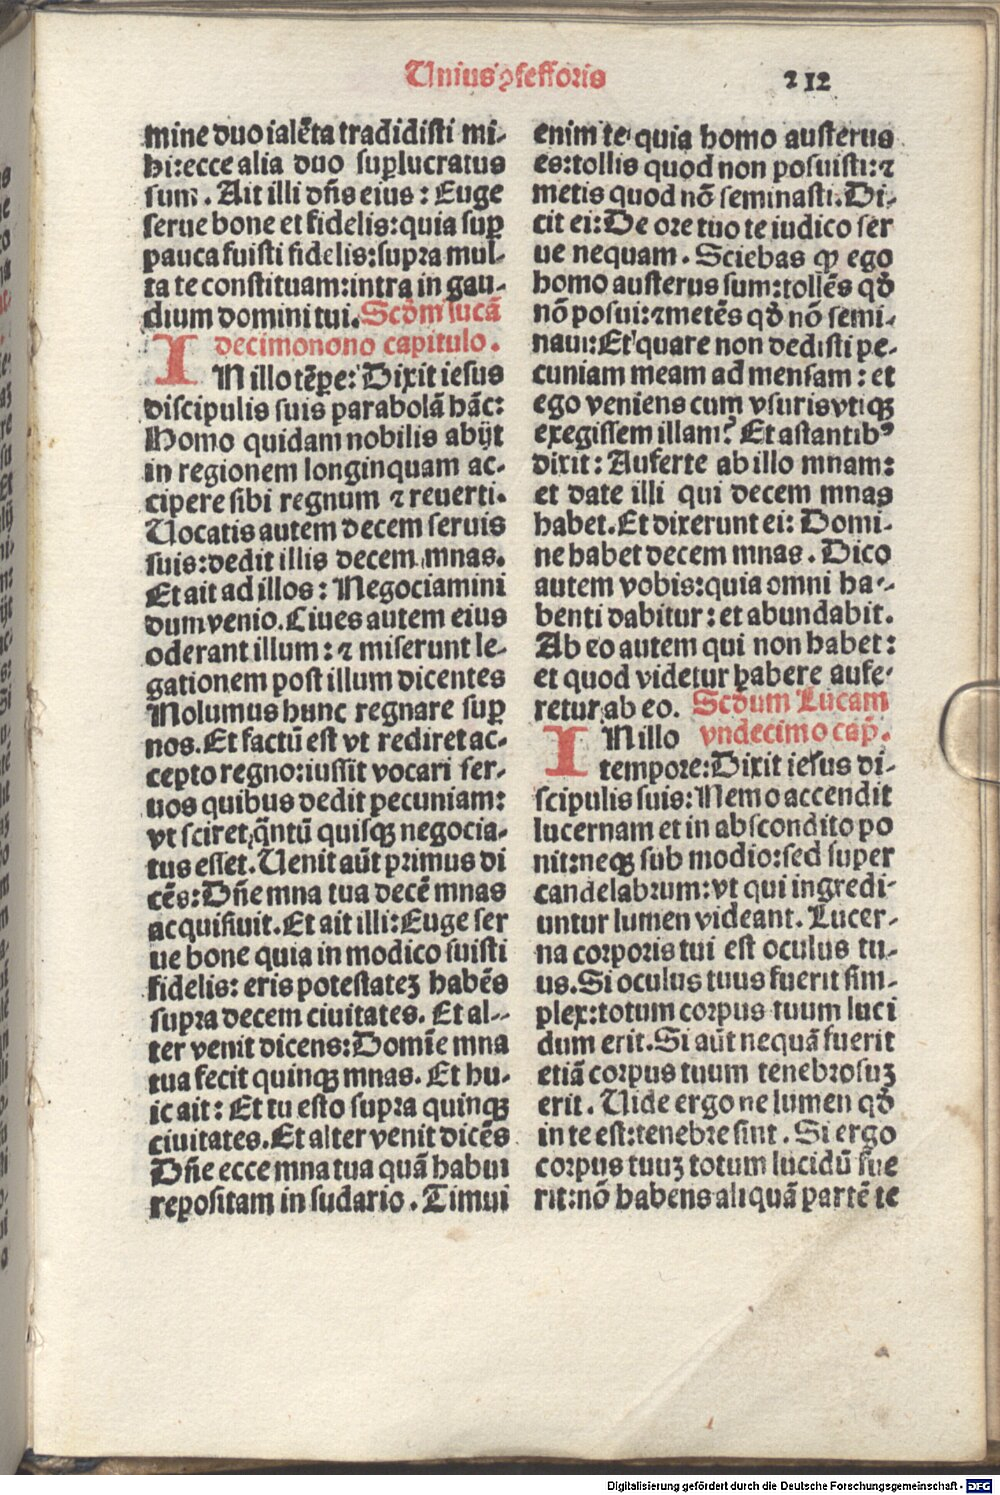 Unius ꝯfessoris 212
mine duo talēta tradidisti mi-
hi: ecce alia duo suꝑlucratus
sum. Ait illi dn̄s eius: Euge
serue bone et fidelis: quia suꝑ
pauca fuisti fidelis: supra mul-
ta te constituam: intra in gau-
dium domini tui. Scd̄m lucā
decimonono capitulo.
IN illo tēꝑe: Dixit iesus
discipulis suis parabolā hāc:
Homo quidam nobilis abijt
in regionem longinquam ac-
cipere sibi regnum ⁊ reuerti.
Uocatis autem decem seruis
suis: dedit illis decem mnas.
Et ait ad illos: Negociamini
dum venio. Ciues autem eius
oderant illum: ⁊ miserunt le-
gationem post illum dicentes
Nolumus hunc regnare suꝑ
nos. Et factū est vt rediret ac-
cepto regno: iussit vocari ser-
uos quibus dedit pecuniam:
vt sciret q̄ntū quisqꝫ negocia-
tus esset. Uenit aūt primus di
cēs: Dn̄e mna tua decē mnas
acquisiuit. Et ait illi: Euge ser
ue bone quia in modico fuisti
fidelis: eris potestateꝫ habēs
supra decem ciuitates. Et al-
ter venit dicens: Domīe mna
tua fecit quinqꝫ mnas. Et hu-
ic ait: Et tu esto supra quinqꝫ
ciuitates. Et alter venit dicēs
Dn̄e ecce mna tua quā habui
repositam in sudario. Timui
enim te quia homo austerus
es: tollis quod non posuisti: ⁊
metis quod nō seminasti. Di-
cit ei: De ore tuo te iudico ser
ue nequam. Sciebas ꝙ ego
homo austerus sum: tollēs qd̄
nō posui: ⁊ metēs qd̄ nō semi-
naui: Et quare non dedisti pe-
cuniam meam ad mensam: et
ego veniens cum vsuris vtiqꝫ
exegissem illam? Et astantibꝰ
dixit: Auferte ab illo mnam:
et date illi qui decem mnas
habet. Et dixerunt ei: Domi-
ne habet decem mnas. Dico
autem vobis: quia omni ha-
benti dabitur: et abundabit.
Ab eo autem qui non habet:
et quod videtur habere aufe-
retur ab eo. Scd̄um Lucam
IN illo vndecimo cap̄.
tempore: Dixit iesus di-
scipulis suis: Nemo accendit
lucernam et in abscondito po
nit: neqꝫ sub modio: sed super
candelabrum: vt qui ingredi-
untur lumen videant. Lucer-
na corporis tui est oculus tu-
us. Si oculus tuus fuerit sim-
plex: totum corpus tuum luci
dum erit. Si aūt nequā fuerit
etiā corpus tuum tenebrosuꝫ
erit. Uide ergo ne lumen qd̄
in te est: tenebre sint. Si ergo
corpus tuuꝫ totum lucidū fue
rit: nō habens aliquā partē te
Digitalisierung gefördert durch die Deutsche Forschungsgemeinschaft - DFG